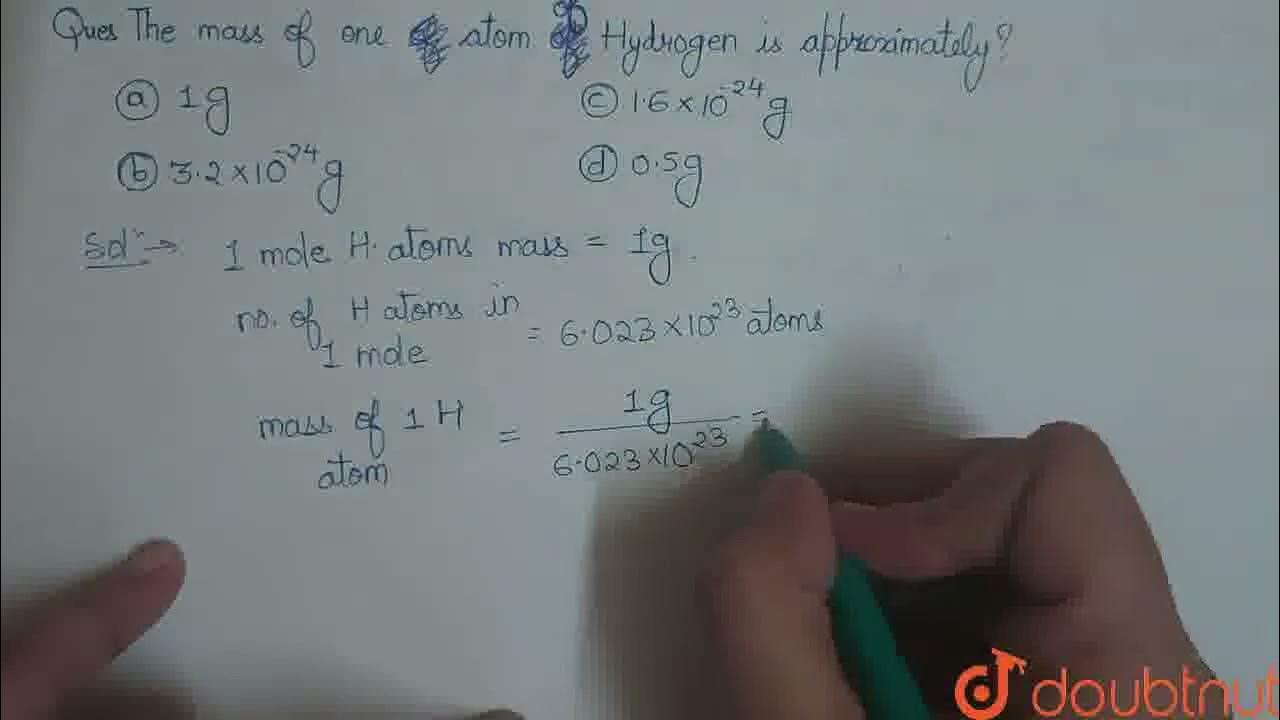 Ques The mass of one atom of Hydrogen is approximately?
(a) 1g (c) 1.6 × 10⁻²⁴ g
(b) 3.2 × 10⁻²⁴ g (d) 0.5g
Solⁿ → 1 mole H. atoms mass = 1g.
no. of H atoms in 1 mole = 6.023 × 10²³ atoms
mass of 1 H atom = 1g / 6.023 × 10²³ =
doubtnut